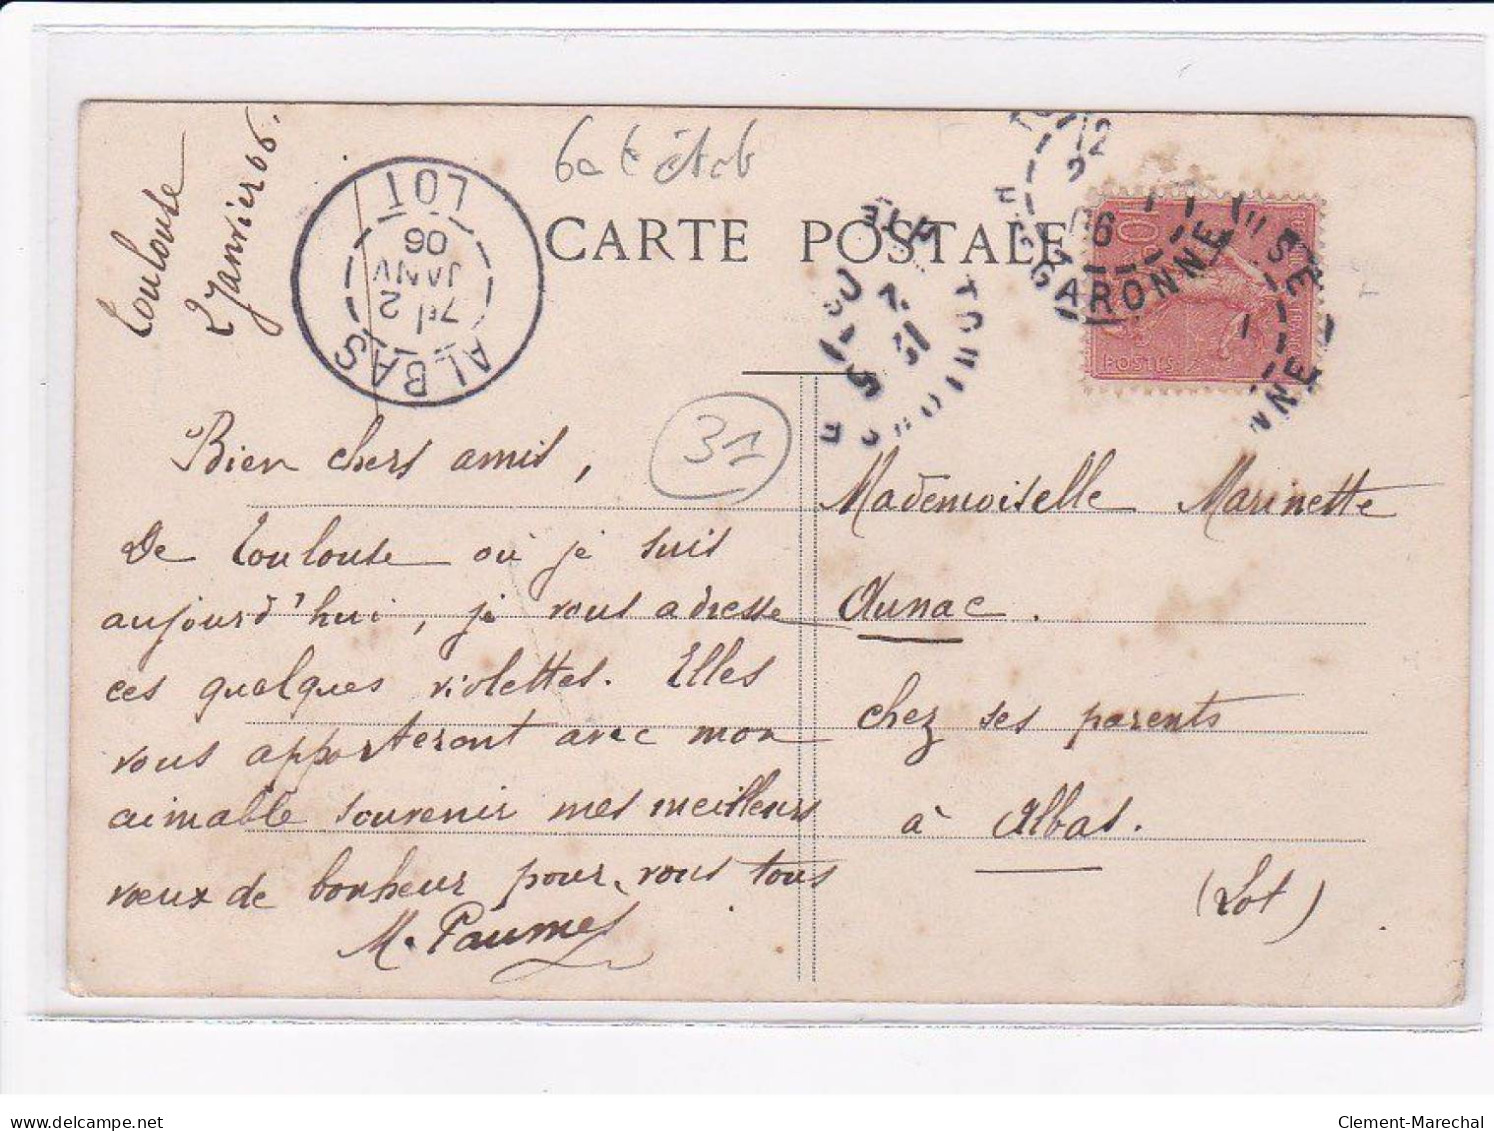 Toulouse
2 Janvier 06.
CARTE POSTALE
ALBAS
2
JANV
06
LOT
GARONNE
POSTES
10
31
Bien chers amis,
De Toulouse où je suis
aujourd'hui, je vous adresse
ces quelques violettes. Elles
vous apporteront avec mon
aimable souvenir mes meilleurs
vœux de bonheur pour vous tous
M. Paumes
Mademoiselle Marinette
Aunac.
chez ses parents
à Albas.
(Lot)
www.delcampe.net
Clement-Marechal